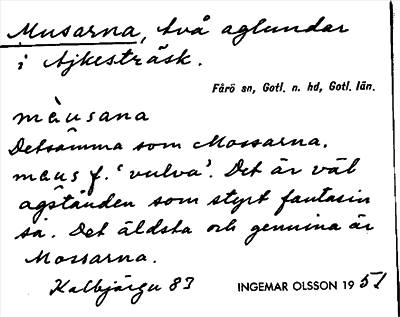 Musarna, två aglundar
i Ajkesträsk.
Fårö sn, Gotl. n. hd, Gotl. län.
mèusana
Detsamma som Mossarna.
mæus f. 'vulva'. Det är väl
som styrt fantasin
så. Det äldsta och genuina är
Mossarna.
Kalbjärga 83
INGEMAR OLSSON 1951